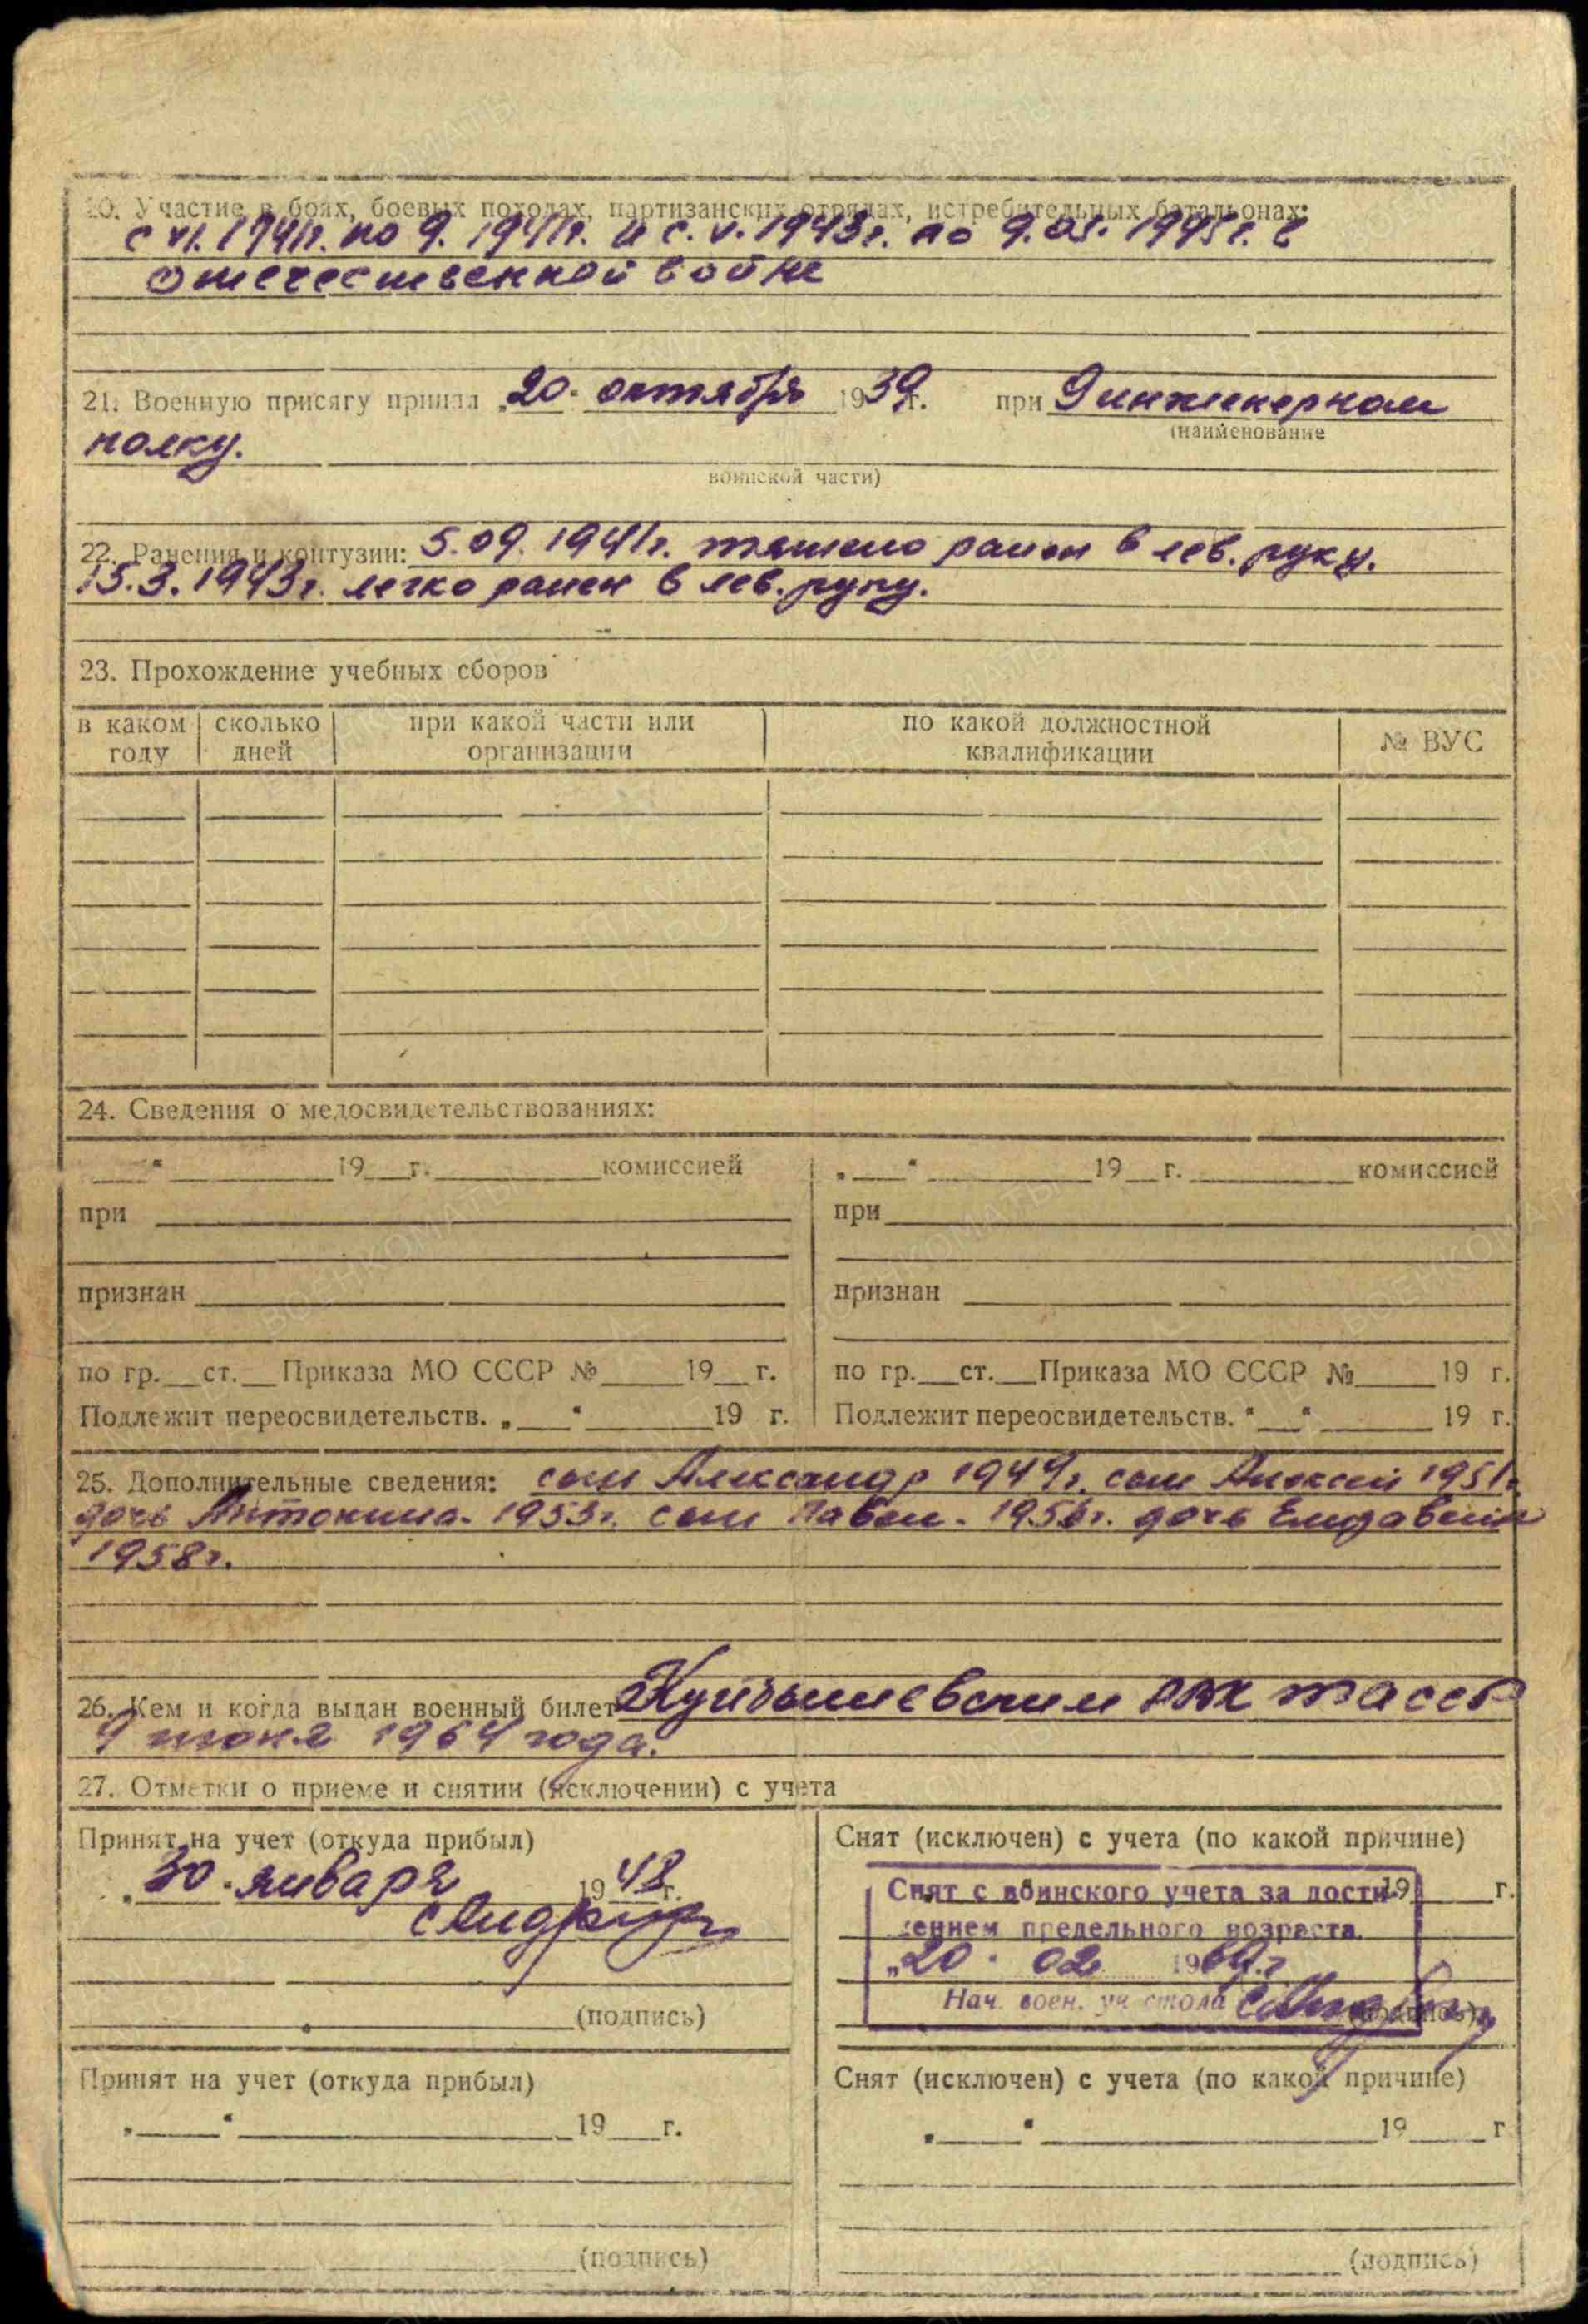 20. Участие в боях, боевых походах, партизанских отрядах, истребительных батальонах:
с VI. 1941г. по 9. 1941г. и с. V. 1943г. по 9.05. 1945г. в
отечественной войне
21. Военную присягу принял „20" октября 1939г. при 9 инженерном
(наименование
полку.
воинской части)
22. Ранения и контузии: 5.09.1941г. тяжело ранен в лев. руку.
15.3.1943г. легко ранен в лев. руку.
23. Прохождение учебных сборов
в каком году сколько дней при какой части или организации по какой должностной квалификации № ВУС
24. Сведения о медосвидетельствованиях:
„___" ______ 19__г. ______ комиссией „___" ______ 19__г. ______ комиссией
при при
признан признан
по гр.__ст.__Приказа МО СССР №____19__г. по гр.__ст.__Приказа МО СССР №____19 г.
Подлежит переосвидетельств. „___" ______19 г. Подлежит переосвидетельств. "___" ______19 г.
25. Дополнительные сведения: сын Александр 1949г. сын Алексей 1951г.
дочь Антонина. 1953г. сын Павел. 1956г. дочь Елизавета
1958г.
26. Кем и когда выдан военный билет Куйбышевским РВК ТАССР
9 июня 1964 года.
27. Отметки о приеме и снятии (исключении) с учета
Принят на учет (откуда прибыл) Снят (исключен) с учета (по какой причине)
„30" января 1948г. 19 г.
Снят с воинского учета за дости-
жением предельного возраста
„20" 02 1969г.
Нач. воен. уч стола
(подпись) (подпись)
Принят на учет (откуда прибыл) Снят (исключен) с учета (по какой причине)
„___" ______19__г. „___" ______19__г
(подпись) (подпись)